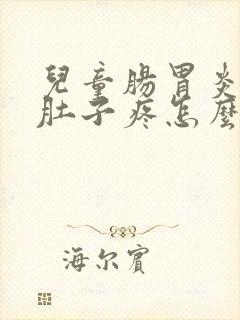 兒童腸胃炎
肚子疼怎麼
海尔賓